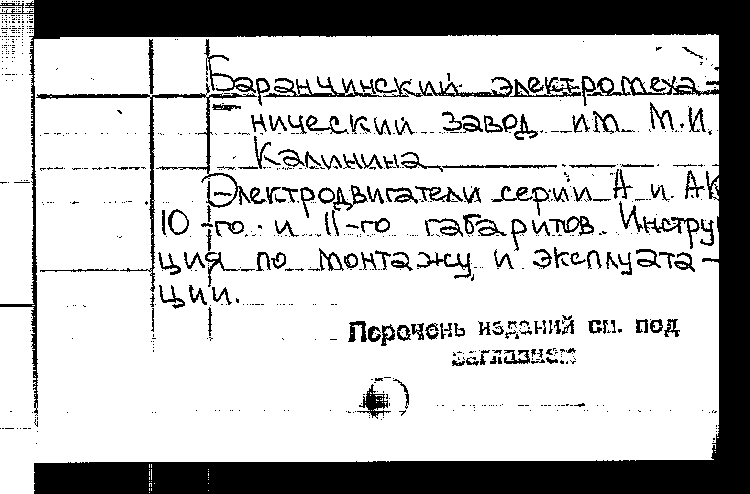 Баранчинский электромеха-
нический завод им М.И.
Калинина.
Электродвигатели серии А и АК
10-го и 11-го габаритов. Инстру
ция по монтажу и эксплуата-
ции.
Перечень изданий см. под
заглавием